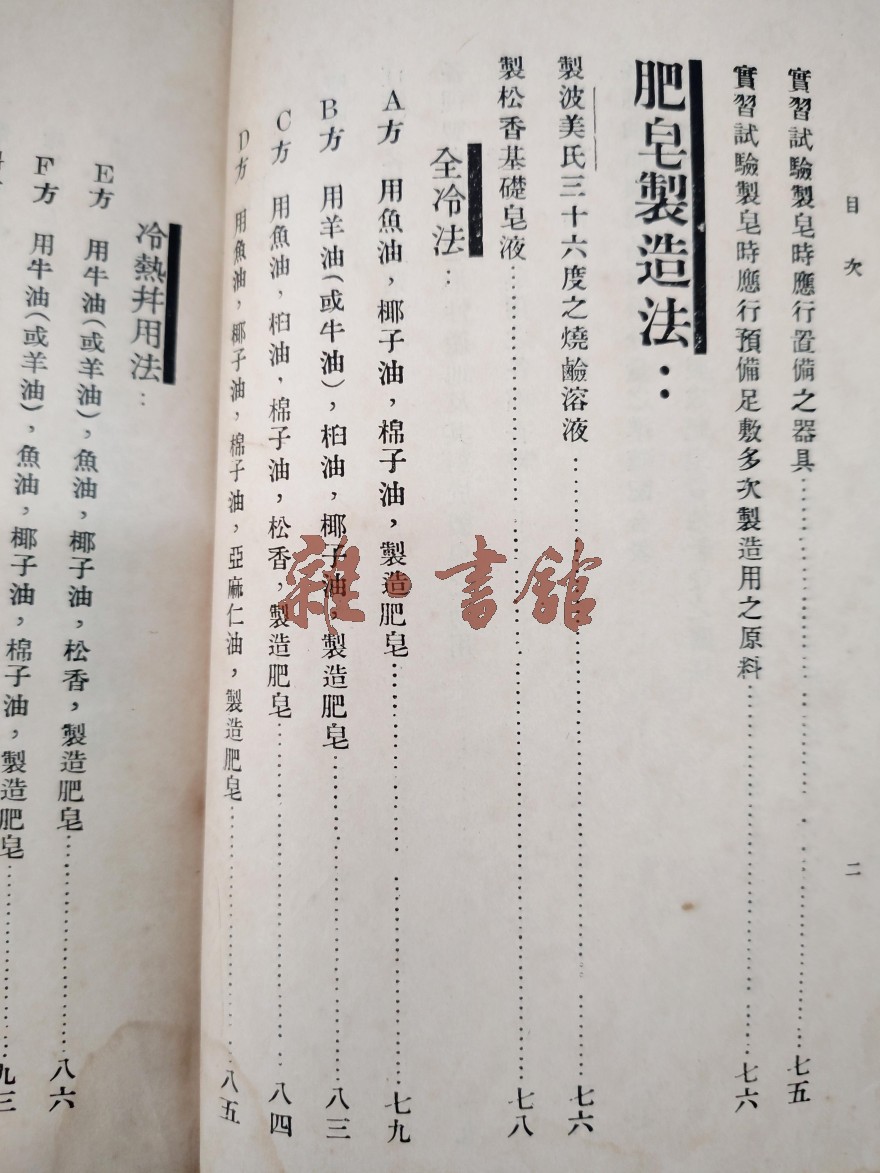 目次
二
實習試驗製皂時應行置備之器具……七五
實習試驗製皂時應行預備足敷多次製造用之原料……七六
肥皂製造法：
製波美氏三十六度之燒鹼溶液……七六
製松香基礎皂液……七八
全冷法：
A方 用魚油，椰子油，棉子油，製造肥皂……七九
B方 用羊油（或牛油），桕油，椰子油，製造肥皂……八三
C方 用魚油，桕油，棉子油，松香，製造肥皂……八四
D方 用魚油，椰子油，棉子油，亞麻仁油，製造肥皂……八五
冷熱幷用法：
E方 用牛油（或羊油），魚油，椰子油，松香，製造肥皂……八六
F方 用牛油（或羊油），魚油，椰子油，棉子油，製造肥皂……九三
雜·書館